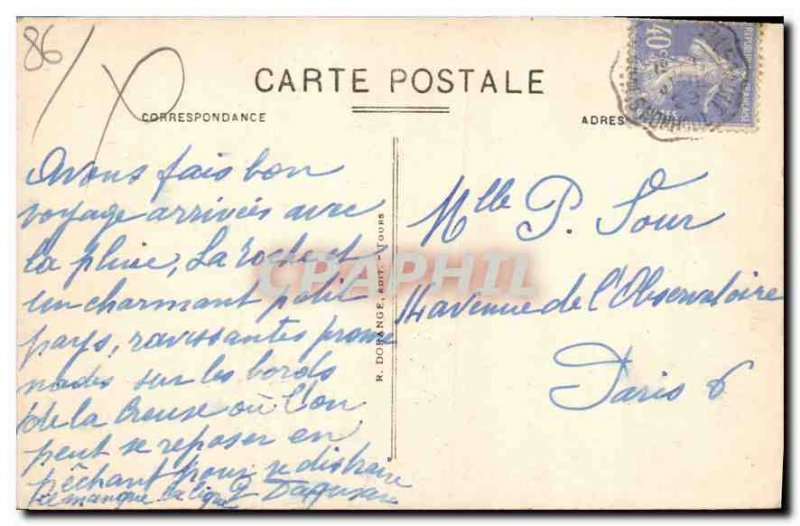 86
CARTE POSTALE
CORRESPONDANCE
ADRES
40c
Avons fais bon
voyage arrivées avec
la pluie, La Roche est
un charmant petit
pays, ravissantes prome
nades sur les bords
de la Creuse où l'on
peut se reposer en
pêchant pour se distraire
manque la ligne
R. DORANGE, EDIT. - TOURS
Mlle P. Sour
14 avenue de l'Observatoire
Paris 6
CPAPHIL